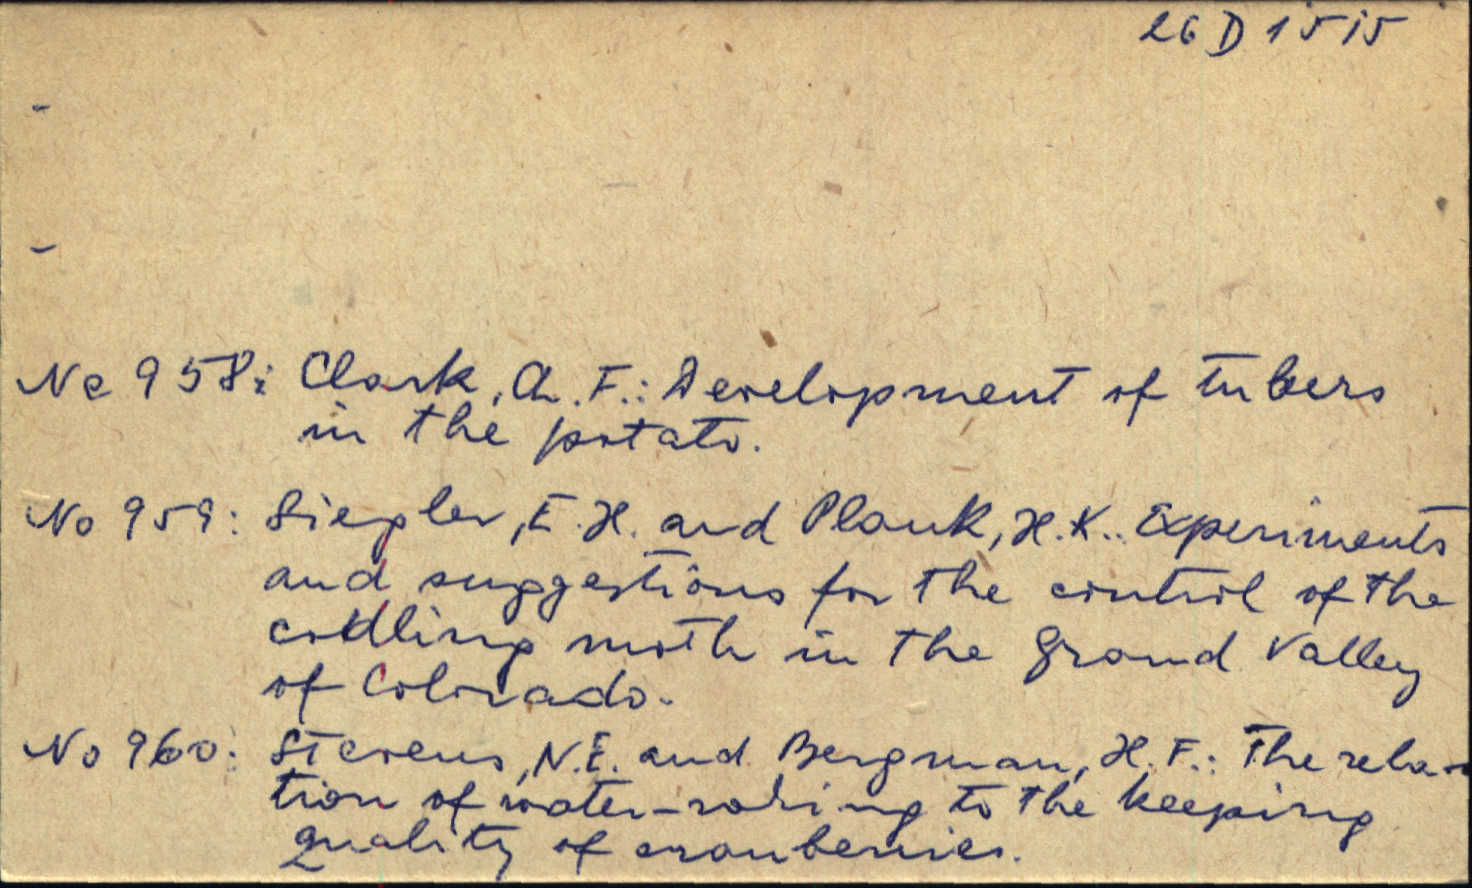 26 D 1515
No 958: Clark, Ch. F.: Development of tubers
in the potato.
No 959: Siegler, E. H. and Plank, H. K.. Experiments
and suggestions for the control of the
codling moth in the Grand Valley
of Colorado.
No 960: Stevens, N. E. and Bergman, H. F.: The rela-
tion of water-raking to the keeping
quality of cranberries.